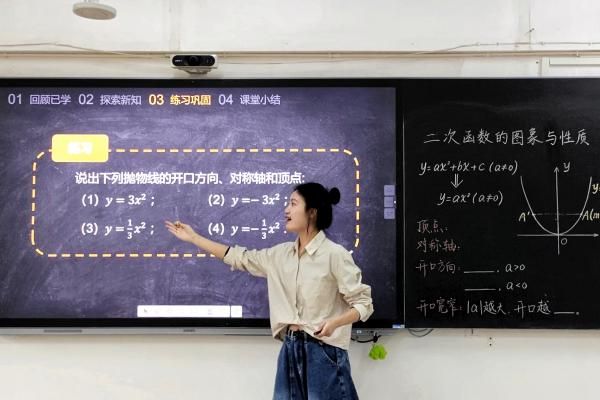 01 回顾已学 02 探索新知 03 练习巩固 04 课堂小结
练习
说出下列抛物线的开口方向、对称轴和顶点:
(1) y = 3x²; (2) y = − 3x²;
(3) y = 1/3 x²; (4) y = − 1/3 x²
二次函数的图象与性质
y=ax²+bx+c (a≠0)
y=ax² (a≠0)
y
y=
A'
A(m
O
x
顶点:
对称轴:
开口方向: ____, a>0
____, a<0
开口宽窄: |a|越大,开口越____.